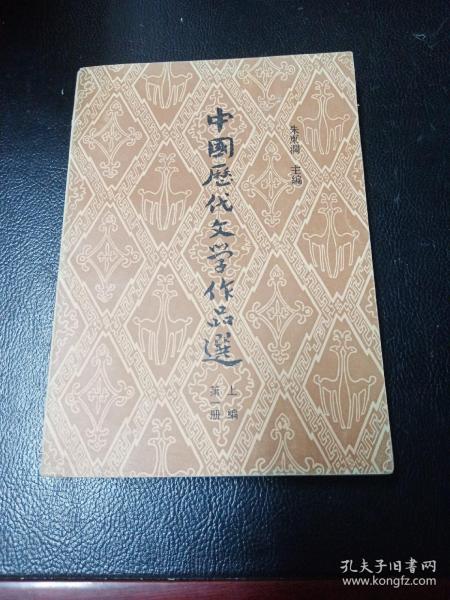 朱東潤 主编
中國歷代文学作品選
上编
第一册
孔夫子旧书网
www.kongfz.com